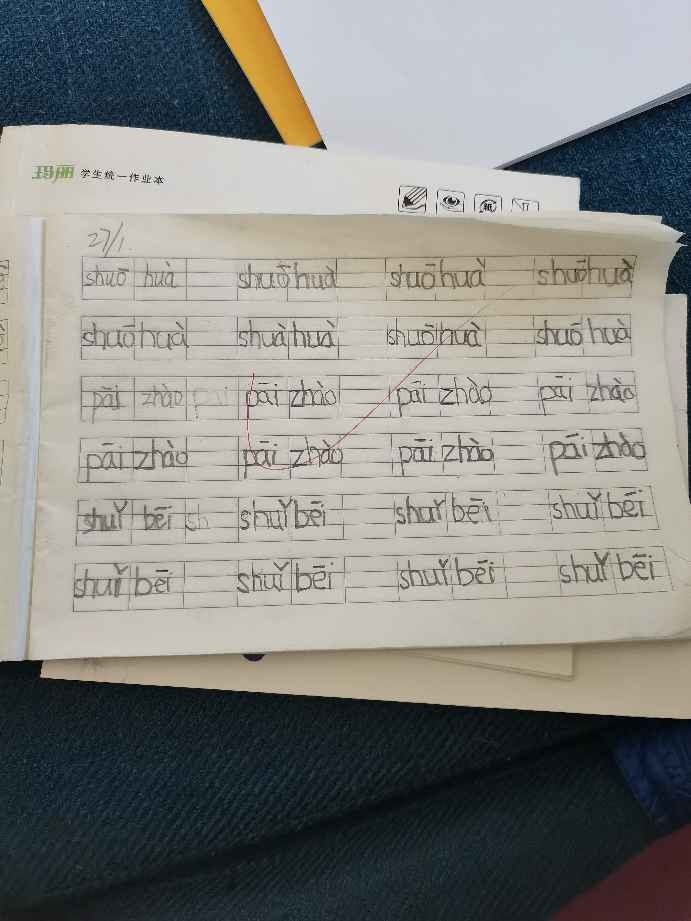 玛丽 学生统一作业本
27/1.
shuō huà shuōhuà shuōhuà shuōhuà
shuōhuà shuàhuà shuōhuà shuōhuà
pāi zhào pai pāi zhào pāi zhào pāi zhào
pāi zhào pāi zhào pāi zhào pāi zhào
shuǐ bēi sh shuǐ bēi shuǐ bēi shuǐ bēi
shuǐ bēi shuǐ bēi shuǐ bēi shuǐ bēi